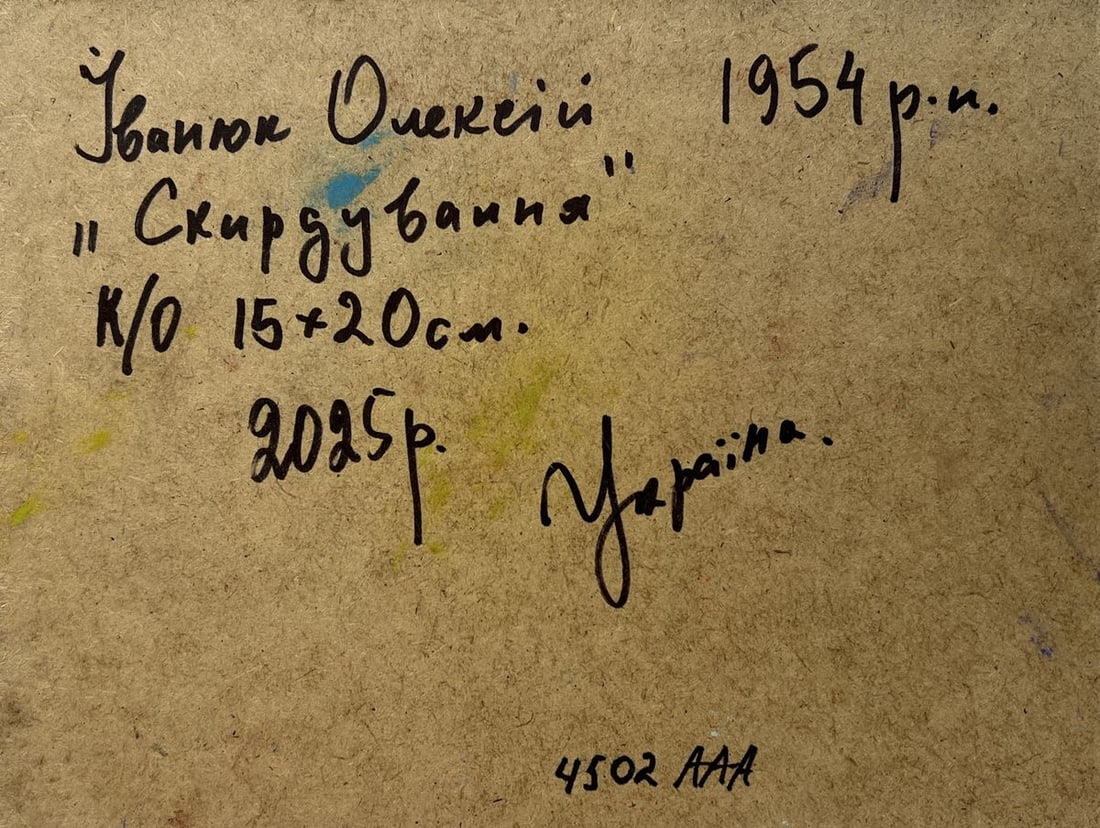 Іванюк Олексій 1954 р.н.
„Скирдування"
К/О 15×20см.
2025р.
Україна.
4502 AAA